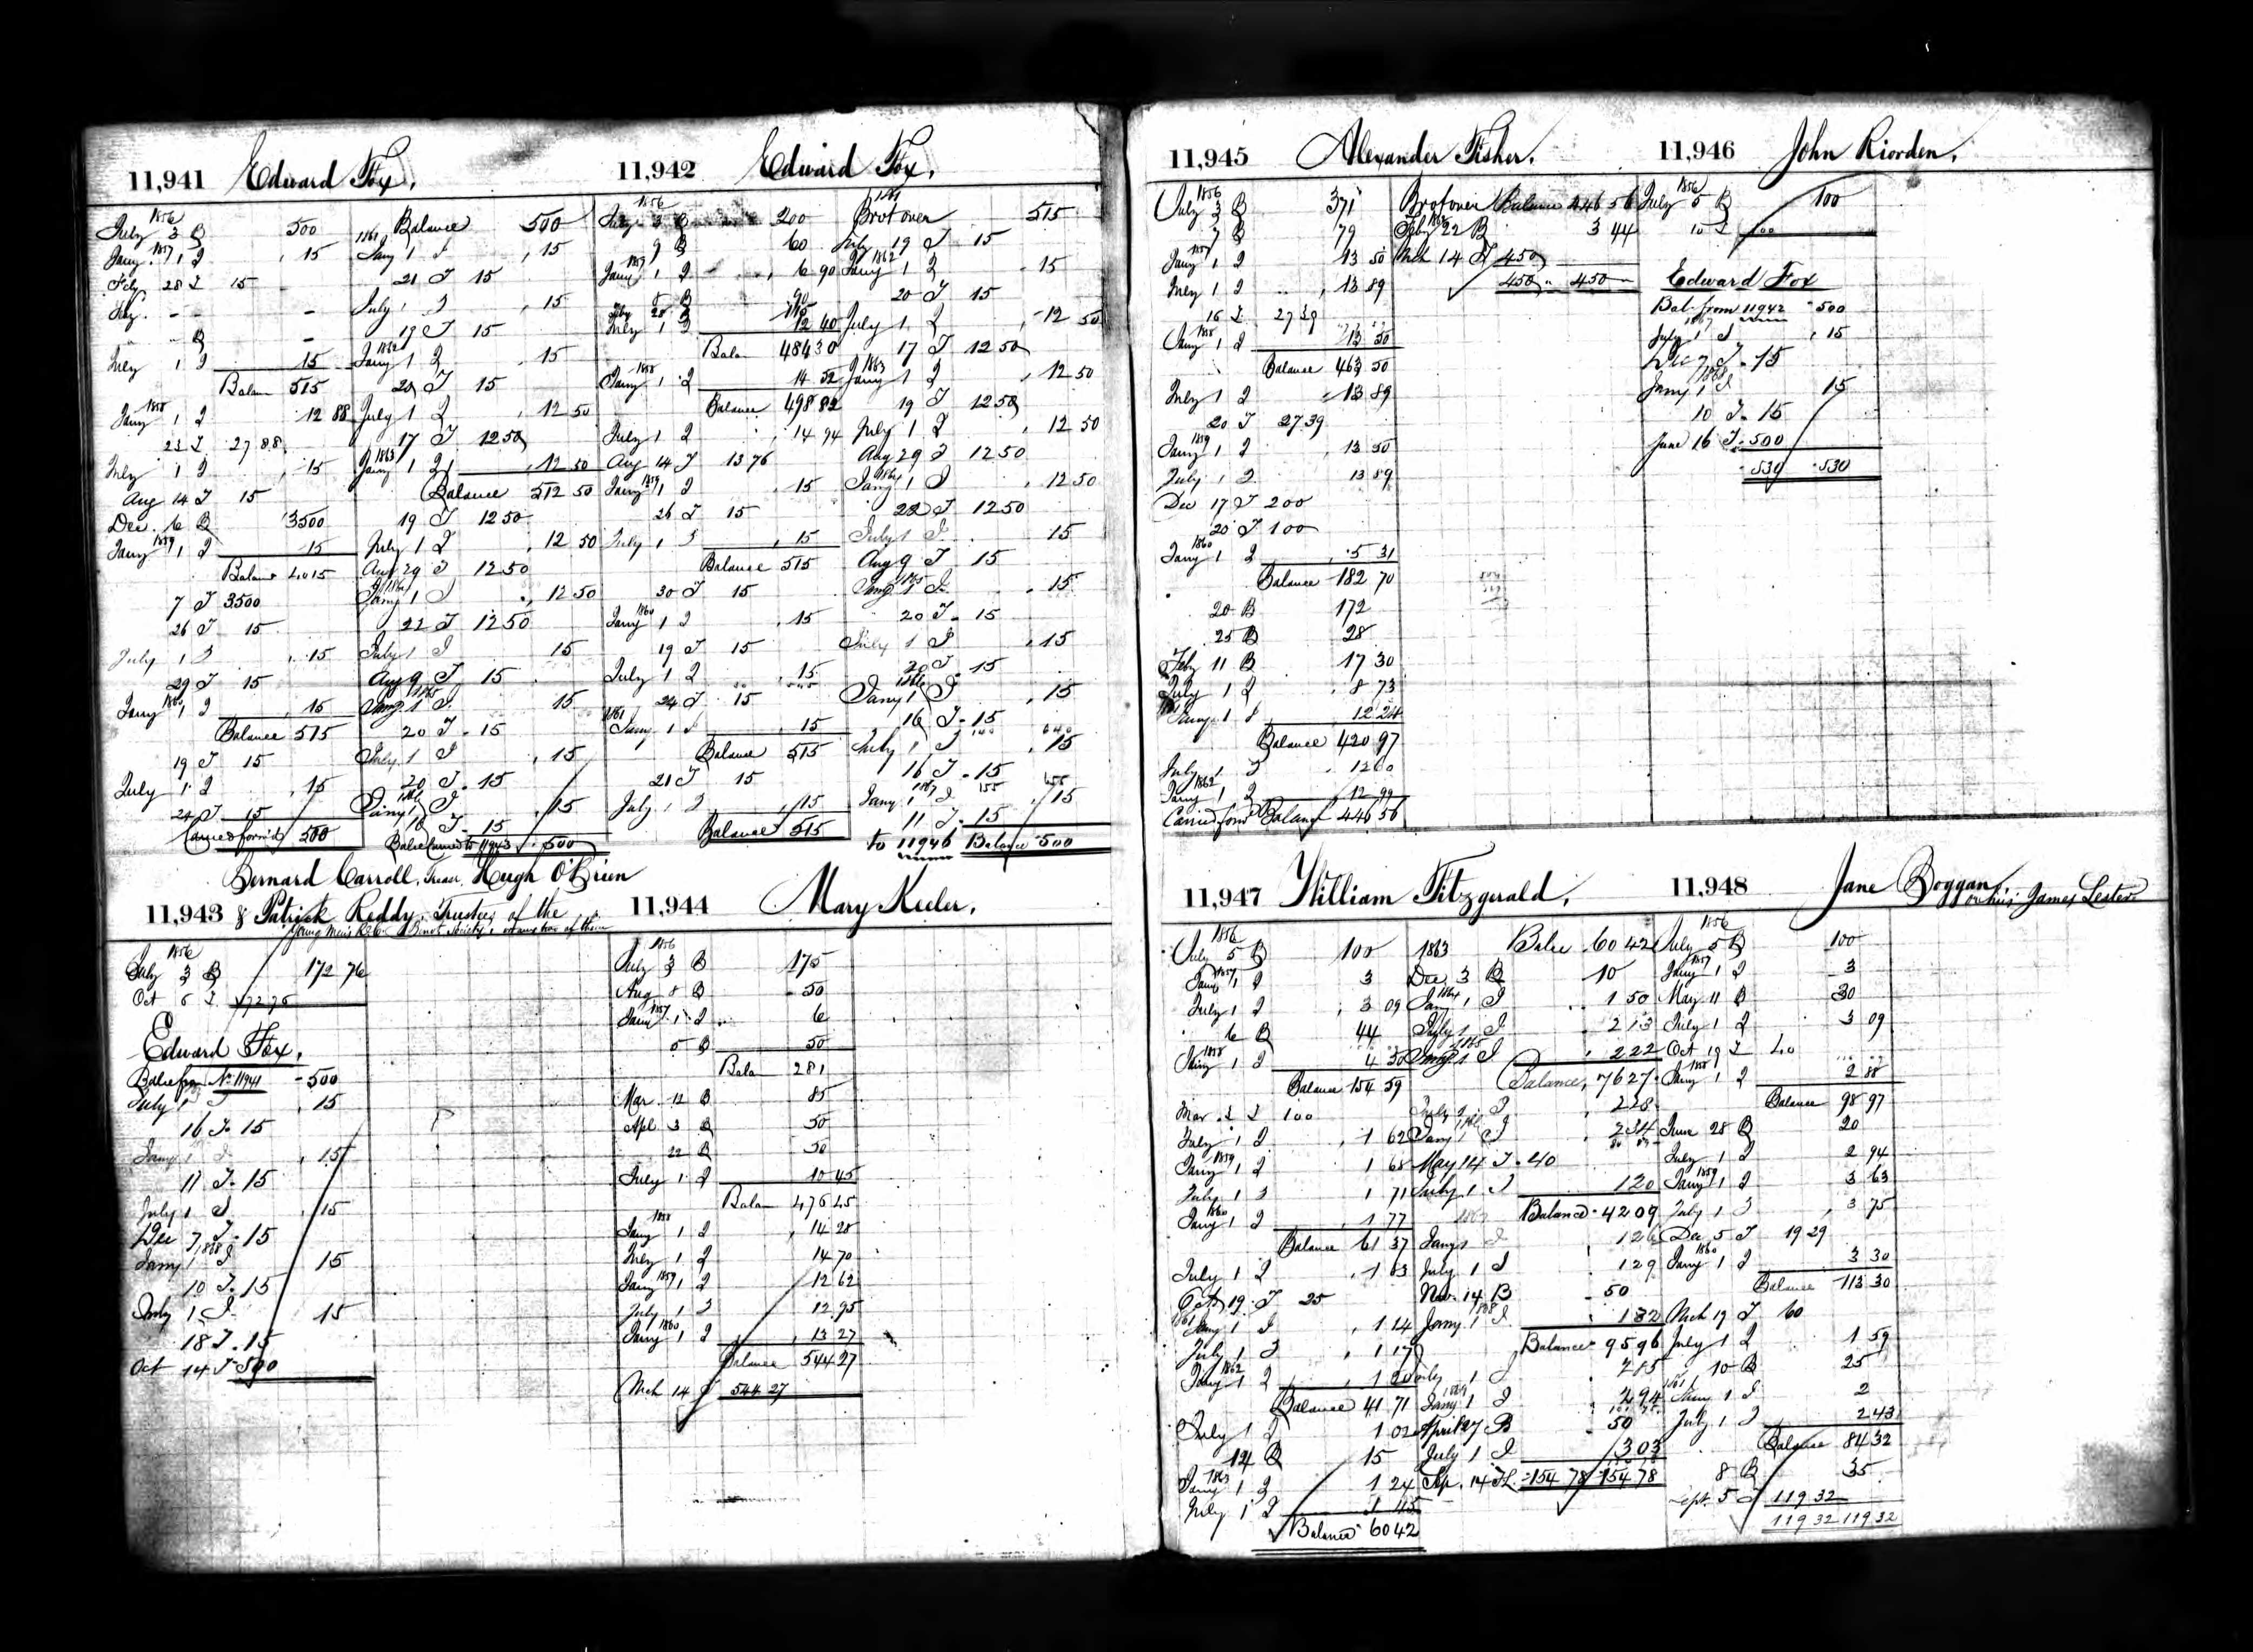 11,941 Edward Fox.
1856
July 3 B 500
Jany 1857 1 I 15
Feby 28 T 15
July 1 I 15
Balan 515
Jany 1858 1 I 12 88
23 T 27 88
July 1 I 15
Aug 14 T 15
Dec 6 B 3500
Jany 1859 1 I 15
Balance 4015
7 T 3500
26 T 15
July 1 I 15
29 T 15
Jany 1860 1 I 15
Balance 515
19 T 15
July 1 I 15
24 T 15
Carried forw'd 500
Balance 500
1861 Jany 1 I 15
21 T 15
July 1 I 15
19 T 15
1862 Jany 1 I 15
20 T 15
July 1 I 12 50
17 T 12 50
1863 Jany 1 I 12 50
Balance 512 50
19 T 12 50
July 1 I 12 50
Aug 29 T 12 50
1864 Jany 1 I 12 50
22 T 12 50
July 1 I 15
Aug 9 T 15
1865 Jany 1 I 15
20 T 15
July 1 I 15
20 T 15
1866 Jany 1 I 15
16 T 15
Balce Carried to 11943 500
11,942 Edward Fox.
1856
July 3 B 200
9 B 60
Jany 1857 1 I 6 90
8 B 90
Feby 28 B 115
July 1 I 12 40
Balan 484 30
Jany 1858 1 I 14 52
Balance 498 82
July 1 I 14 94
Aug 14 T 13 76
Jany 1859 1 I 15
26 T 15
July 1 I 15
Balance 515
30 T 15
Jany 1860 1 I 15
19 T 15
July 1 I 15
24 T 15
1861 Jany 1 I 15
Balance 515
21 T 15
July 1 I 15
Balance 515
1861
Brot over 515
July 19 T 15
1862 Jany 1 I 15
20 T 15
July 1 I 12 50
17 T 12 50
1863 Jany 1 I 12 50
19 T 12 50
July 1 I 12 50
Aug 29 T 12 50
1864 Jany 1 I 12 50
22 T 12 50
July 1 I 15
Aug 9 T 15
1865 Jany 1 I 15
20 T 15
July 1 I 15
20 T 15
1866 Jany 1 I 15
16 T 15
July 1 I 15
16 T 15
1867 Jany 1 I 15
11 T 15
to 11946 Balance 500
Bernard Carroll, Hugh O'Brien
11,943 & Patrick Reddy, Trustees of the
Young Men's
1856
July 3 B 172 76
Oct 6 T 172 76
Edward Fox.
Balce from No 11941 500
July 1 I 15
16 T 15
Jany 1 I 15
11 T 15
July 1 I 15
Dec 7 T 15
Jany 1868 1 I 15
10 T 15
July 1 I 15
18 T 15
Oct 14 T 500
11,944 Mary Keeler.
1856
July 3 B 175
Aug 8 B 50
Jany 1857 1 I 6
5 B 50
Balan 281
Mar 12 B 85
Apl 3 B 50
22 B 50
July 1 I 10 45
Balan 476 45
1858 Jany 1 I 14 28
July 1 I 14 70
Jany 1859 1 I 12 62
July 1 I 12 95
1860 Jany 1 I 13 27
Balance 544 27
Mch 14 T 544 27
11,945 Alexander Fisher.
1856
July 3 B 371
7 B 79
Jany 1857 1 I 13 50
July 1 I 13 89
16 T 27 39
Jany 1858 1 I 13 50
Balance 463 50
July 1 I 13 89
20 T 27 39
Jany 1859 1 I 13 50
July 1 I 13 89
Dec 17 T 200
20 T 100
1860 Jany 1 I 5 31
Balance 182 70
20 B 172
25 B 28
Feby 11 B 17 30
July 1 I 8 73
Jany 1 I 12 24
Balance 420 97
July 1 I 12 60
1862 Jany 1 I 12 99
Carried forwd Balance 446 56
Brot over Balance 446 56
Feby 22 B 3 44
Mch 14 T 450
450 450
11,946 John Riorden.
1856
July 5 B 100
10 T 100
Edward Fox
Bal. from 11942 500
July 1 I 15
Dec 7 T 15
1868 Jany 1 I 15
10 T 15
June 16 T 500
530 530
11,947 William Fitzgerald.
1856
July 5 B 100
Jany 1857 1 I 3
July 1 I 3 09
6 B 44
Jany 1858 1 I 4 50
Balance 154 59
Mar 2 T 100
July 1 I 1 62
Jany 1859 1 I 1 68
July 1 I 1 71
1860 Jany 1 I 1 77
Balance 61 37
July 1 I 1 83
Oct 19 T 25
1861 Jany 1 I 1 14
July 1 I 1 17
1862 Jany 1 I 1 20
Balance 41 71
July 1 I 1 02
14 B 15
1863 Jany 1 I 1 24
July 1 I 1 45
Balance 60 42
1863 Balce 60 42
Dec 3 B 10
1864 Jany 1 I 1 50
July 1 I 2 13
1865 Jany 1 I 2 22
Balance 76 27
July 1 I 2 28
1866 Jany 1 I 2 34
May 14 T 40
July 1 I 1 20
1867 Balance 42 09
Jany 1 I 1 26
July 1 I 1 29
Nov 14 B 50
1868 Jany 1 I 1 32
Balance 95 96
July 1 I 2 85
1869 Jany 1 I 2 94
April 27 B 50
July 1 I 3 03
Sep. 14 T 154 78 154 78
11,948 Jane Boggan
or his James Lester
1856
July 5 B 100
Jany 1857 1 I 3
May 11 B 30
July 1 I 3 09
Oct 19 T 40
1858 Jany 1 I 2 88
Balance 98 97
June 28 B 20
July 1 I 2 94
1859 Jany 1 I 3 63
July 1 I 3 75
Dec 5 T 19 29
1860 Jany 1 I 3 30
Balance 113 30
Mch 19 T 60
July 1 I 1 59
10 B 25
1861 Jany 1 I 2
July 1 I 2 43
Balance 84 32
8 B 35
Sept. 5 T 119 32
119 32 119 32